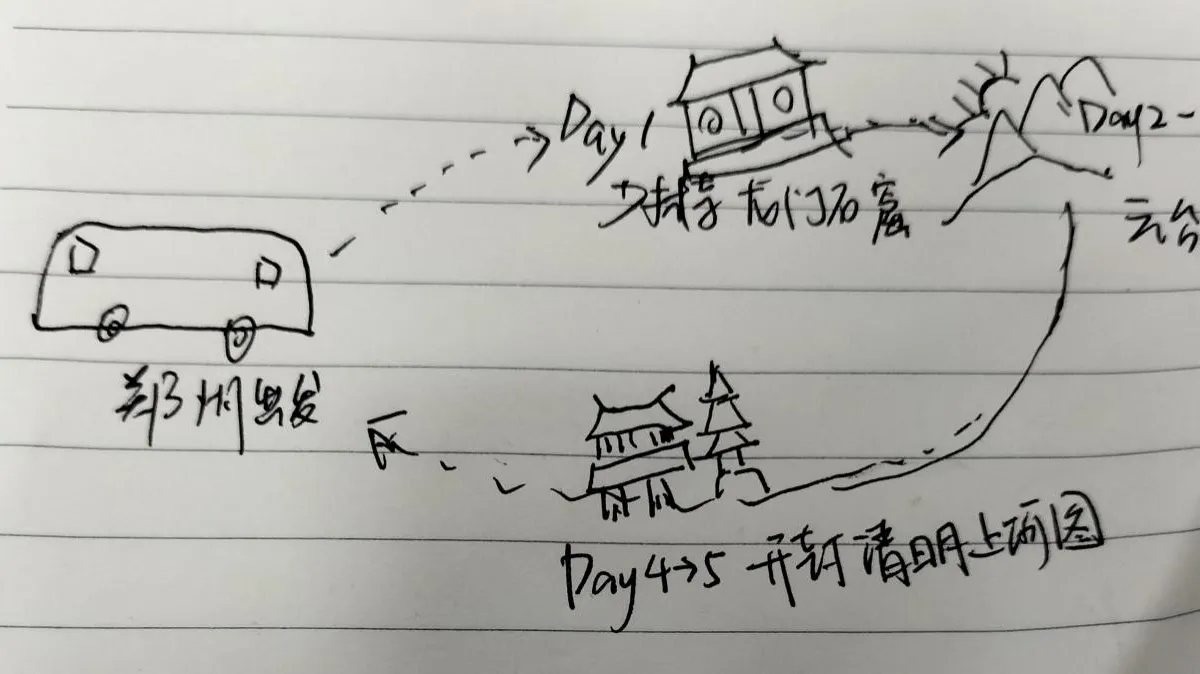 Day 1
少林寺 龙门石窟
Day2-
云台
郑州出发
Day4→5 开封清明上河图